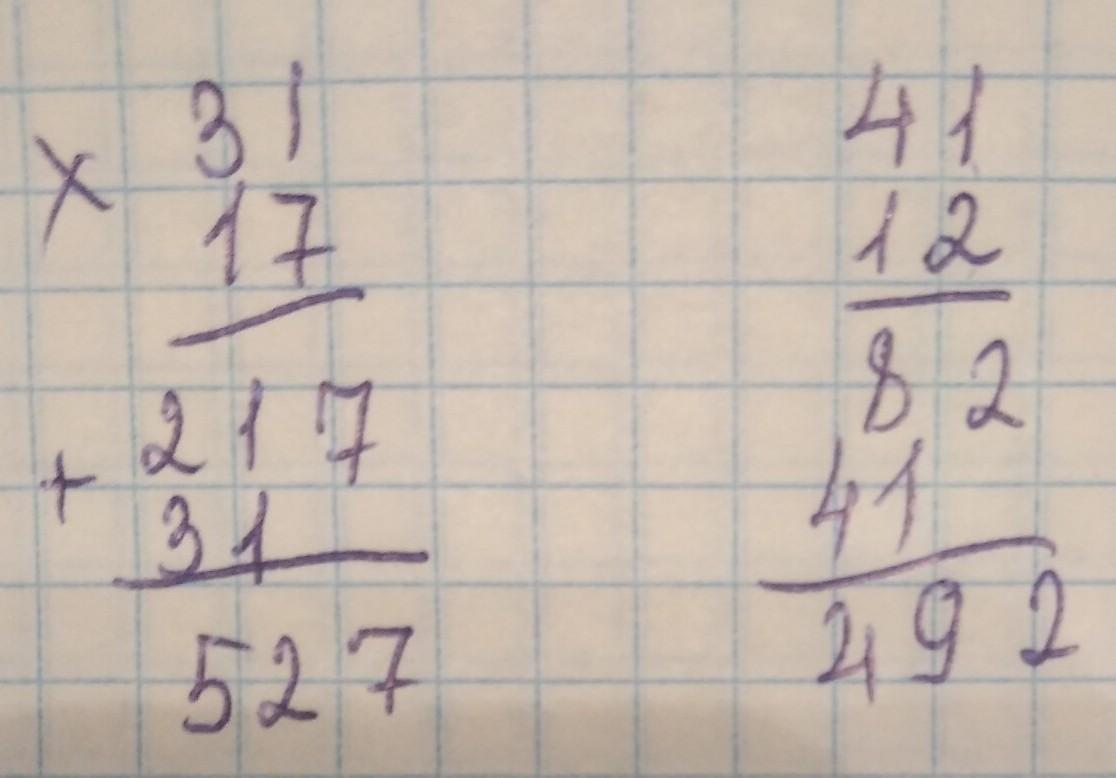 × 31
17
217
+
31
527
41
12
82
41
492